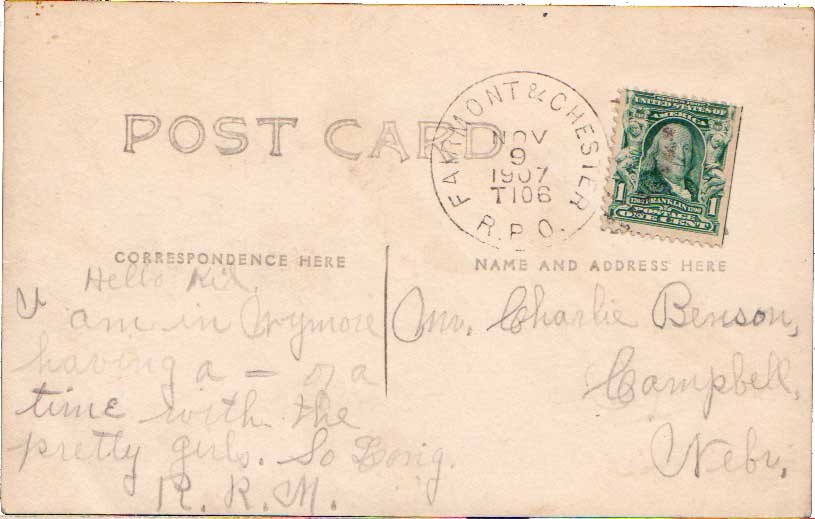 POST CARD
FAIRMONT & CHESTER
NOV
9
1907
T106
R.P.O.
UNITED STATES OF
AMERICA
1 FRANKLIN 1
POSTAGE
ONE CENT
CORRESPONDENCE HERE
Hello Kid,
I am in Wymore
having a — of a
time with the
pretty girls. So Long.
R. R. M.
NAME AND ADDRESS HERE
Mr. Charlie Benson,
Campbell,
Nebr,